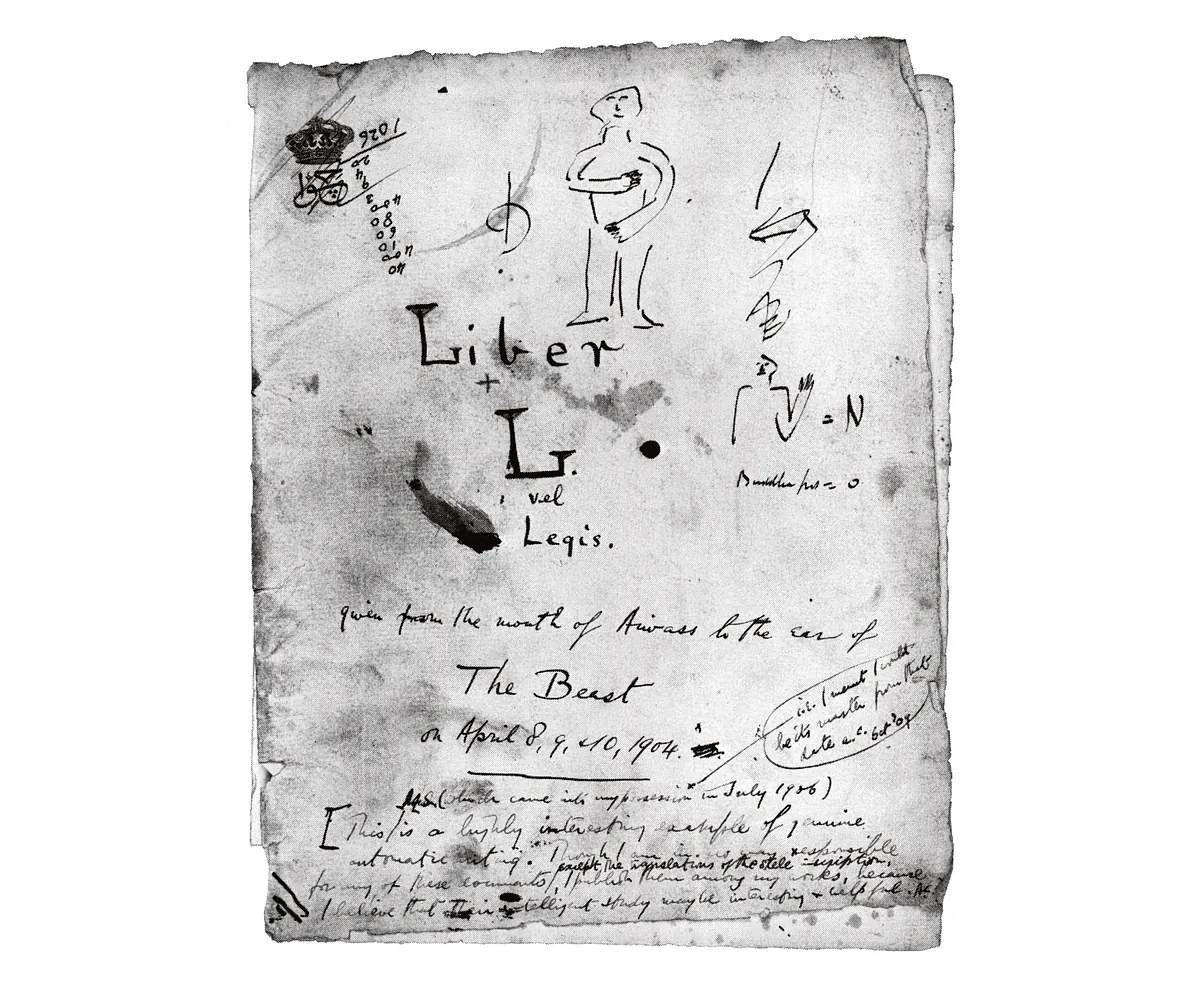 1026
400
80
60
10
400
40
Liber
+
L.
vel
Legis.
= N
Buddha = 0
given from the mouth of Aiwass to the ear of
The Beast
on April 8, 9, & 10, 1904.
i.e. I meant I could
be its master from that
date a.c. Oct '09
MS. (which came into my possession in July 1906)
[This is a highly interesting example of genuine
automatic writing. Though I am in no way responsible
except the translations of the stele inscription,
for any of these documents, I publish them among my works, because
I believe that their intelligent study may be interesting & helpful. A.C.